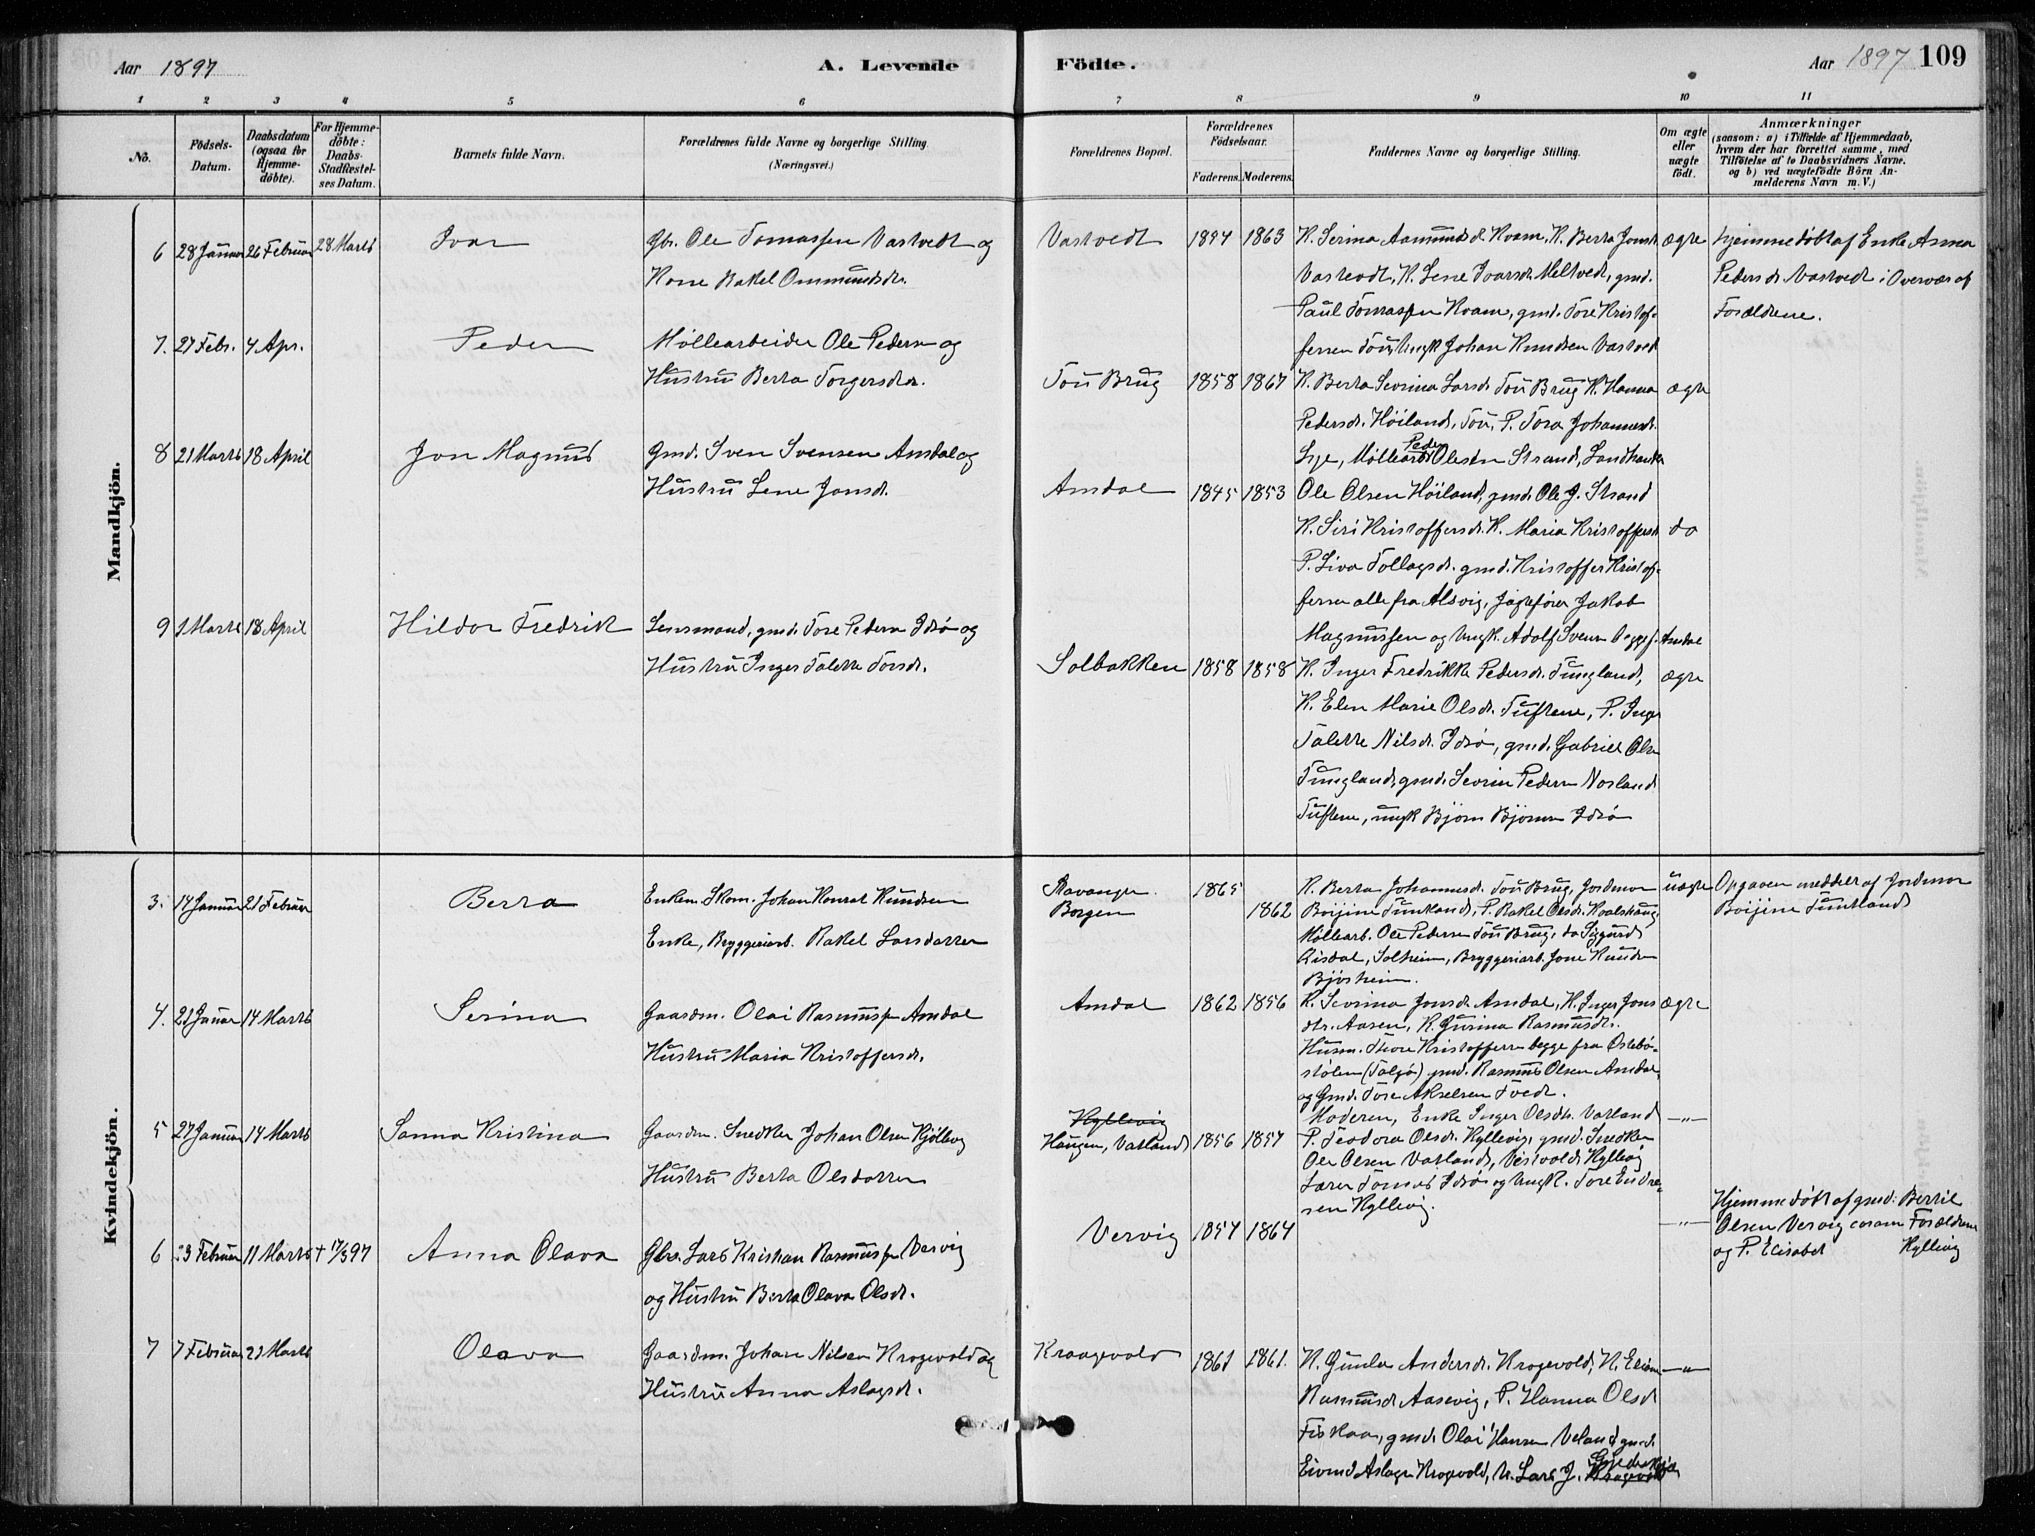 Aar 1897 A. Levende Födte. Aar 1897 109
1 2 3 4 5 6 7 8 9 10 11
Nō. Födsels-Datum. Daabsdatum (ogsaa for Hjemme-döbte). For Hjemme-döbte: Daabs-Stadfæstel-ses Datum. Barnets fulde Navn. Forældrenes fulde Navne og borgerlige Stilling. (Næringsvei.) Forældrenes Bopæl. Forældrenes Födselsaar. Faderens. Moderens. Faddernes Navne og borgerlige Stilling. Om ægte eller uægte födt. Anmærkninger (saasom: a) i Tilfælde af Hjemmedaab, hvem der har forrettet samme, med Tilföielse af to Daabsvidners Navne. og b) ved uægtefödte Börn An-melderens Navn m.V.)
Mandkjön.
6 28 Januar 26 Februar 28 Marts Ivar Gbr. Ole Tomassen Vastvedt og
Kone Rakel Ommundsdr.
Vastvedt 1894 1863 K. Serina Aamundsd. Kvam, K. Berta Jonsd. ægte Hjemmedöbt af Enke Anna
Vastvedt, K. Lene Ivarsdr. Meltvedt, gmd. Pedersdr. Vastvedt i Overvær af
Paul Tomassen Kvam, gmd. Tore Kristof- Forældrene.
fersen Tou, Ungk Johan Knudsen Vastvedt
7. 27 Febr. 4 Apr. Peder Møllearbeider Ole Pedersn og
Hustru Berta Torgersdtr.
Tou Brug 1858 1867 K. Berta Sevrina Larsd. Tou Brug K. Hanna ægte
Pedersdr. Höiland, Tou, P. Tora Johannesdr.
Lye, Møllearb. Peder Olesen Strand, Landhandler
Ole Olsen Höiland, gmd. Ole J. Strand
8 21 Marts 18 April Jon Magnus Gmd. Sven Svensen Amdal og
Hustru Lene Jonsdr.
Amdal 1845 1853
K. Siri Kristoffersdr. K. Maria Kristoffersdr. do
P. Siva Tollagsdr. gmd. Kristoffer Kristof-
fersen alle fra Alsvig, Jagtefører Jakob
Magnussen og Ungk. Adolf Svens begge f. Amdal
9 1 Marts 18 April Hildor Fredrik Lensmand, gmd. Tore Pedersn Idsö og
Hustru Inger Talette Torsdr.
Solbakken 1858 1858 K. Inger Fredrikke Pedersdr. Tungland, ægte
K. Elen Marie Olsdr. Tuftene, P. Inger
Talette Nilsdr. Idsö, gmd. Gabriel Olsn
Tungland, gmd. Sevrin Pedersn Norland
Tuftene, ungk Björn Björnsen Idsö
Kvindekjön.
3. 14 Januar 21 Februar Berta Enkem. Skom. Johan Konrat Knudsen
Enke, Bryggeriarb. Rakel Larsdatter
Stavanger 1865
Borgen 1862
K. Berta Johannesd. Tou Brug, Jordmor uægte Opgaven meddelt af Jordmor
Boijine Tuntland, P. Rakel Olsdr. Kvalshaug Boijine Tuntland
Møllearb. Ole Pedersen Tou Brug, do Siggurd
Risdal, Solheim, Bryggeriarb. Jone Knudsn
Bjørheim.
4. 21 Januar 14 Marts Serina Gaardm. Olai Rasmussn Amdal
Hustru Maria Kristoffersdr.
Amdal 1862 1856 K. Sevrina Jonsdr. Amdal, K. Inger Jons ægte
dtr. Aasen, K. Gurina Rasmusdtr.
Husm. Thore Kristoffersn begge fra Ostebö-
stölen (Talgö) gmd. Rasmus Olsen Amdal,
og Gmd. Tore Akselsen Tvedt.
5 27 Januar 14 Marts Sanna Kristina Gaardm. Snedker Johan Olsen Kjöllevg
Hustru Berta Olsdatter
Hyllevig
Haugen, Vatland 1856 1857
Moderen, Enke Inger Olsdtr. Vatland —"—
P. Teodora Olsdr. Hyllevig, gmd. Snedker
Ole Olsen Vatland, Hyllevig
Lærer Tomas Idsö og Ungk. Tore Endre-
sen Hyllevig.
6 23 Februar 11 Marts † 17/3 97 Anna Olava Gbr. Lars Kristian Rasmussn Vervig
og Hustru Berta Olava Olsdr.
Vervig 1857 1864 —"— Hjemmedöbt af gmd. Bertil
Olsen Vervig coram Forældrene
og P. Elisabet Hyllevig
7 7 Februar 21 Marts Olava Gaardm. Johan Nilsen Krogevold og
Hustru Anna Aslagsdr.
Kraagevold 1861 1861. K. Gunla Andersdr. Krogevold, K. —"—
Rasmusd Aasevig, P. Hanna Olsd
Fiskaa, gmd. Olai Hansen Veland, gmd.
Eivind Aslagsn Krogevold, U. Lars J. Krogevold